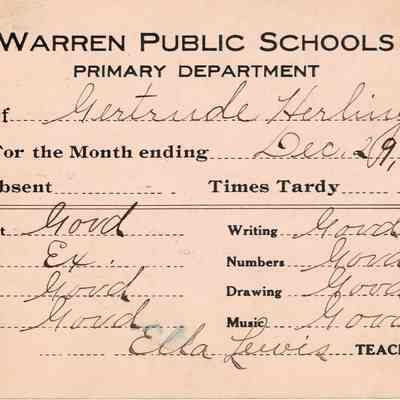 WARREN PUBLIC SCHOOLS
PRIMARY DEPARTMENT
f Gertrude Herlin
For the Month ending Dec. 29,
bsent Times Tardy
t Good Writing Good
Ex. Numbers Good
Good Drawing Good
Good Music Good
Ella Lewis TEAC